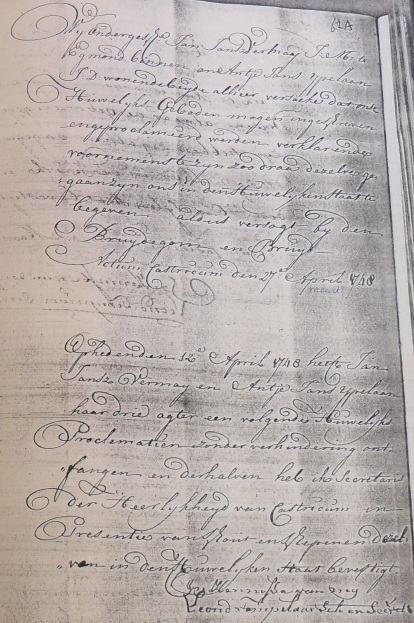 62A
Wij ondergesz: Jan Jansz Derhaag J.M: te
Egmond binnen en Antje Jans Zijpelaan
J.D. wonende beijde alhier versoeke dat onse
Huwelijks Geboden mogen ingeschreven
en geproclameerd werden verklarende
voornemens te zijn zoo dra dezelve ge
gaan zijn ons in den Huwelijken Staat te
begeven aldus versogt bij den
Bruijdegom en Bruijt
Actum Castricum den 27e April 1748
maart
Op heden den 12e April 1748 heeft Jan
Jansz Vermaij en Antje Jans Zijpelaan
haar drie agter een volgende Huwelijks
Proclamatien zonder verhindering ont„
„fangen en derhalven heb ik Secretaris
der Heerlykheijd van Castricum in
Presentie van Schout en Schepenen dezel„
„ven in den Huwelijken Staat bevestigt
In kennisse van mij